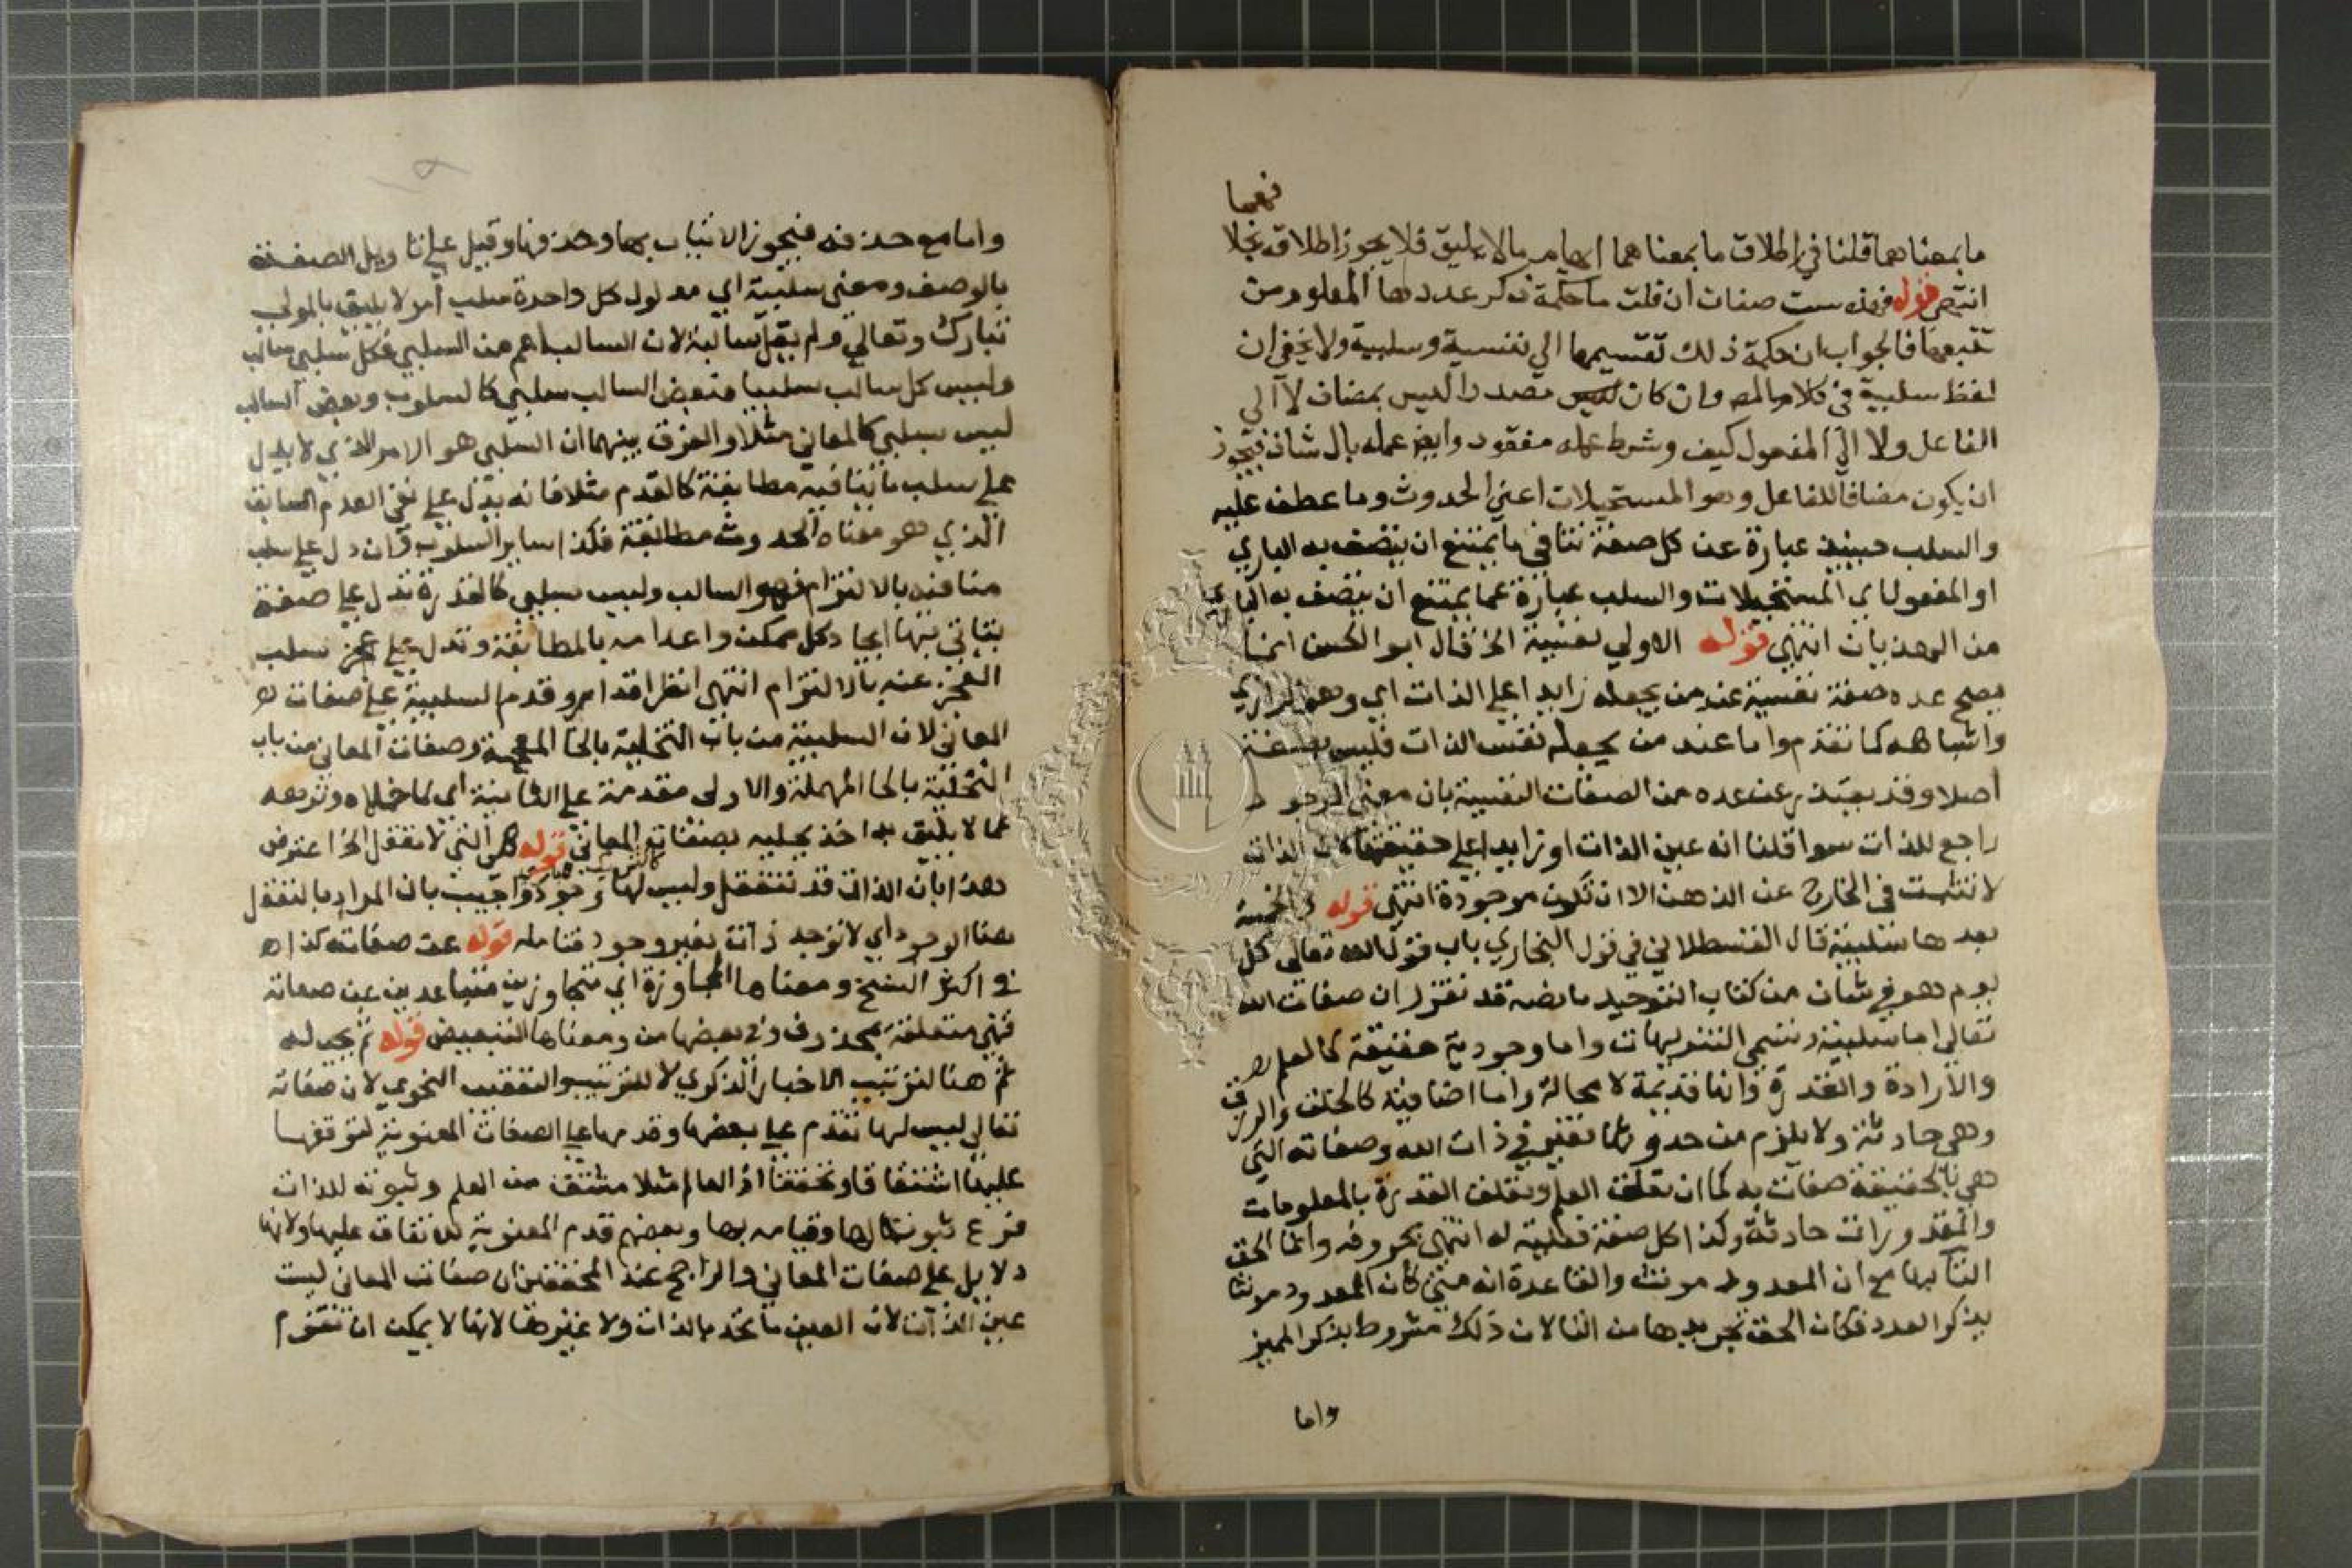 فهما
ما بمعناهما قلنا في اطلاق ما بمعناهما ايهام ما لا يليق فلا يجوز اطلاقه بخلا
انتهى قوله فهذه ست صفات ان قلت ما حكمة ذكر عددها المعلوم من
تتبعها فالجواب ان حكمة ذلك تقسيمها الي نفسية وسلبية ولا يخفى ان
لفظ سلبية في كلام المص وان كان مصدرا ليس بمضاف لا الي
الفاعل ولا الي المفعول كيف وشرط عمله مفقود وايض عمله بال شاذ فيجوز
ان يكون مضافا للفاعل وهو المستحيلات اعني الحدوث وما عطف عليه
والسلب حينيذ عبارة عن كل صفة تنافي ما يمتنع ان يتصف به الباري
او المفعول اي المستحيلات والسلب عبارة عما يمتنع ان يتصف به الباري
من الهذيان انتهى قوله الاولي نفسية الخ قال ابو الحسن انما
يصح عده صفة نفسية عند من يجعله زايدا علي الذات اي وهو الرازي
واشباهه كما تقدم واما عند من يجعله نفس الذات فليس بصفة
اصلا وقد يعتذر عن عده من الصفات النفسية بان معنى الوجود
راجع للذات سوا قلنا انه عين الذات او زايد اعلي حقيقتها لان الذات
لا تثبت في الخارج عن الذهن الا ان تكون موجودة انتهى قوله والخمسة
بعدها سلبية قال القسطلاني في قول البخاري باب قول الله تعالى كل
يوم هو في شان من كتاب التوحيد ما نصه قد تقرر ان صفات الله
تعالى اما سلبية وتسمى التنزيهات واما وجودية حقيقة كالعلم
والارادة والقدرة وانها قديمة لا محالة واما اضافية كالخلق والرزق
وهي حادثة ولا يلزم من حدوثها تغيير في ذات الله وصفاته التي
هي بالحقيقة صفات به كما ان تعلق العلم وتعلق القدرة بالمعلومات
والمقدورات حادثة وكذا كل صفة فعلية له انتهى بحروفه وانما الحق
التا بها مع ان المعدود مونث والقاعدة انه متى كان المعدود مونثا
يذكر العدد فكان الحق تجريدها من التا لان ذلك مشروط بذكر المميز
واما
واما مع حذفه فيجوز الاتيان بها وحذفها وقيل علي تاويل الصفة
بالوصف ومعنى سلبية اي مدلول كل واحدة سلب امر لا يليق بالمولي
تبارك وتعالي ولم يقل سالبة لان السالب اعم من السلبي فكل سلبي سالب
وليس كل سالب سلبيا فبعض السالب سلبي كالسلوب وبعض السالب
ليس سلبي كالمعاني مثلا والفرق بينهما ان السلبي هو الامر الذي لا يدل
علي سلب ما ينافيه مطابقة كالقدم مثلا فانه يدل علي نفي العدم السابق
الذي هو معناه الحدوث مطابقة فكذا ساير السلوب وان دل علي سلب
منافيه بالالتزام فهو السالب وليس سلبي كالقدرة تدل علي صفة
يتاتى بها ايجاد كل ممكن واعدامه بالمطابقة وتدل علي عجز سلب
العجز عنه بالالتزام انتهى انظر اقدامر وقدم السلبية علي صفات
المعاني لان السلبية من باب التخلية بالخا المعجمة وصفات المعاني من باب
التحلية بالحا المهملة والاولى مقدمة علي الثانية اي لما خلاه ونزهه
عما لا يليق به اخذ يحليه بصفات المعاني قوله هي التي لا تعقل الخ اعترض
هذا بان الذات قد تتعقل وليس لها وجود واجيب بان المراد بالتعقل
هنا الوجود اي لا توجد ذاته بغير وجود فتامله قوله عن صفاته كذا
في اكثر النسخ ومعناها المجاوزة اي متجاوزين متباعدين عن صفاته
فهي متعلقة بمحذوف وفي بعضها من ومعناها التبعيض قوله ثم يجب له
ثم هنا لترتيب الاخبار الذكري لا للترتيب والتعقب النحوي لان صفاته
تعالى ليس لها تقدم علي بعضها وقدمها علي الصفات المعنوية لتوقفها
عليها اشتقاقا وتحققا اذ العالم مثلا مشتق من العلم وثبوته للذات
فرع ثبوتها لها وقيامه بها وبعضهم قدم المعنوية للاتفاق عليها ولانها
دلايل علي صفات المعاني والراجح عند المحققين ان صفات المعاني ليست
عين الذات لان العين ما تحد بالذات ولا غيرها لانها لا يمكن ان تقوم